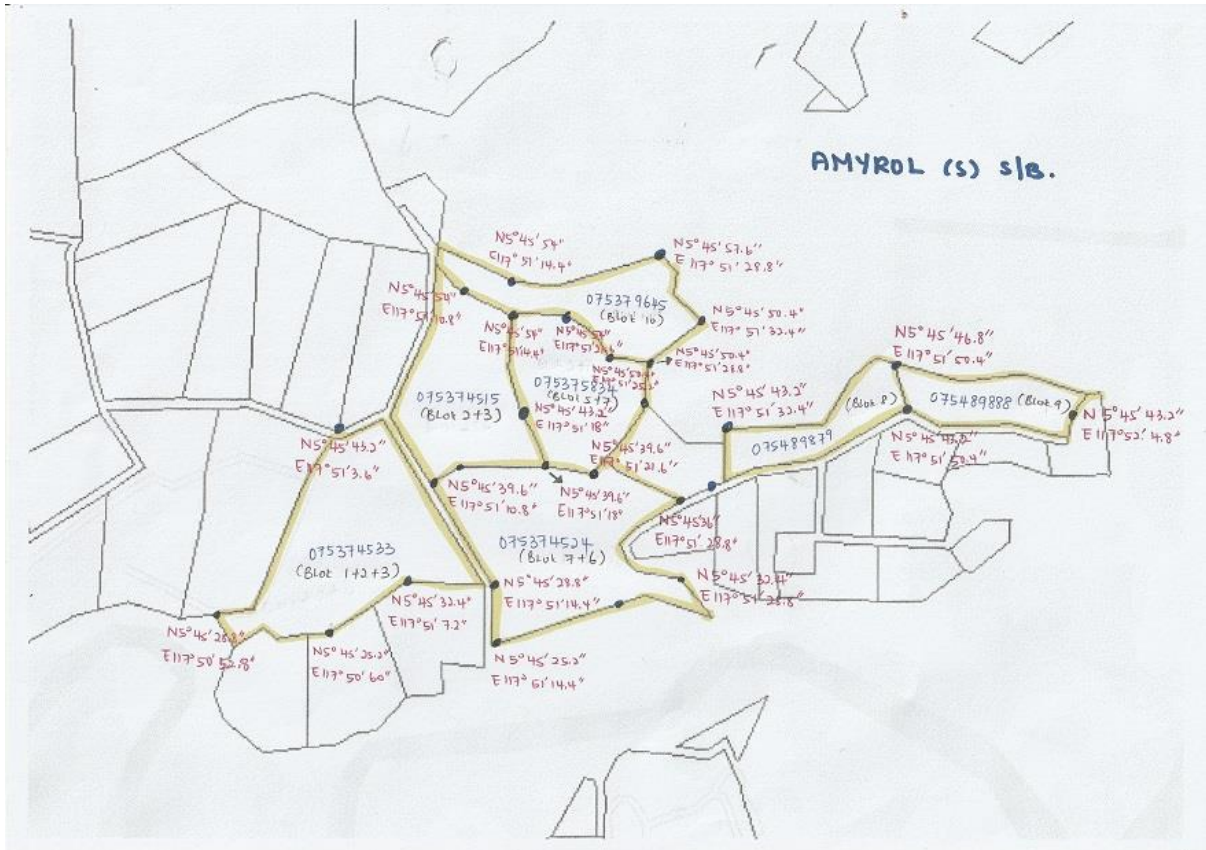 AMYROL (S) S/B.
N5°45'54"
E117°51'14.4"
N5°45'57.6"
E117°51'28.8"
075379645
(BLOK 10)
N5°45'54"
E117°51'10.8"
N5°45'54"
E117°51'14.4"
N5°45'54"
N5°45'50.4"
E117°51'32.4"
N5°45'50.4"
E117°51'28.8"
N5°45'50.4"
E117°51'25.2"
N5°45'46.8"
E117°51'50.4"
075375834
(BLOK 5+7)
075374515
(BLOK 2+3)
N5°45'43.2"
E117°51'18"
N5°45'43.2"
E117°51'32.4"
(BLOK 8)
075489888 (BLOK 9)
N5°45'43.2"
E117°52'4.8"
N5°45'43.2"
E117°51'50.4"
075489879
N5°45'43.2"
E117°51'3.6"
N5°45'39.6"
E117°51'21.6"
N5°45'39.6"
E117°51'10.8"
N5°45'39.6"
E117°51'18"
N5°45'36"
E117°51'28.8"
075374524
(BLOK 7+6)
075374533
(BLOK 1+2+3)
N5°45'28.8"
E117°51'14.4"
N5°45'32.4"
E117°51'28.8"
N5°45'32.4"
E117°51'7.2"
N5°45'28.8"
E117°50'52.8"
N5°45'25.2"
E117°50'60"
N5°45'25.2"
E117°51'14.4"